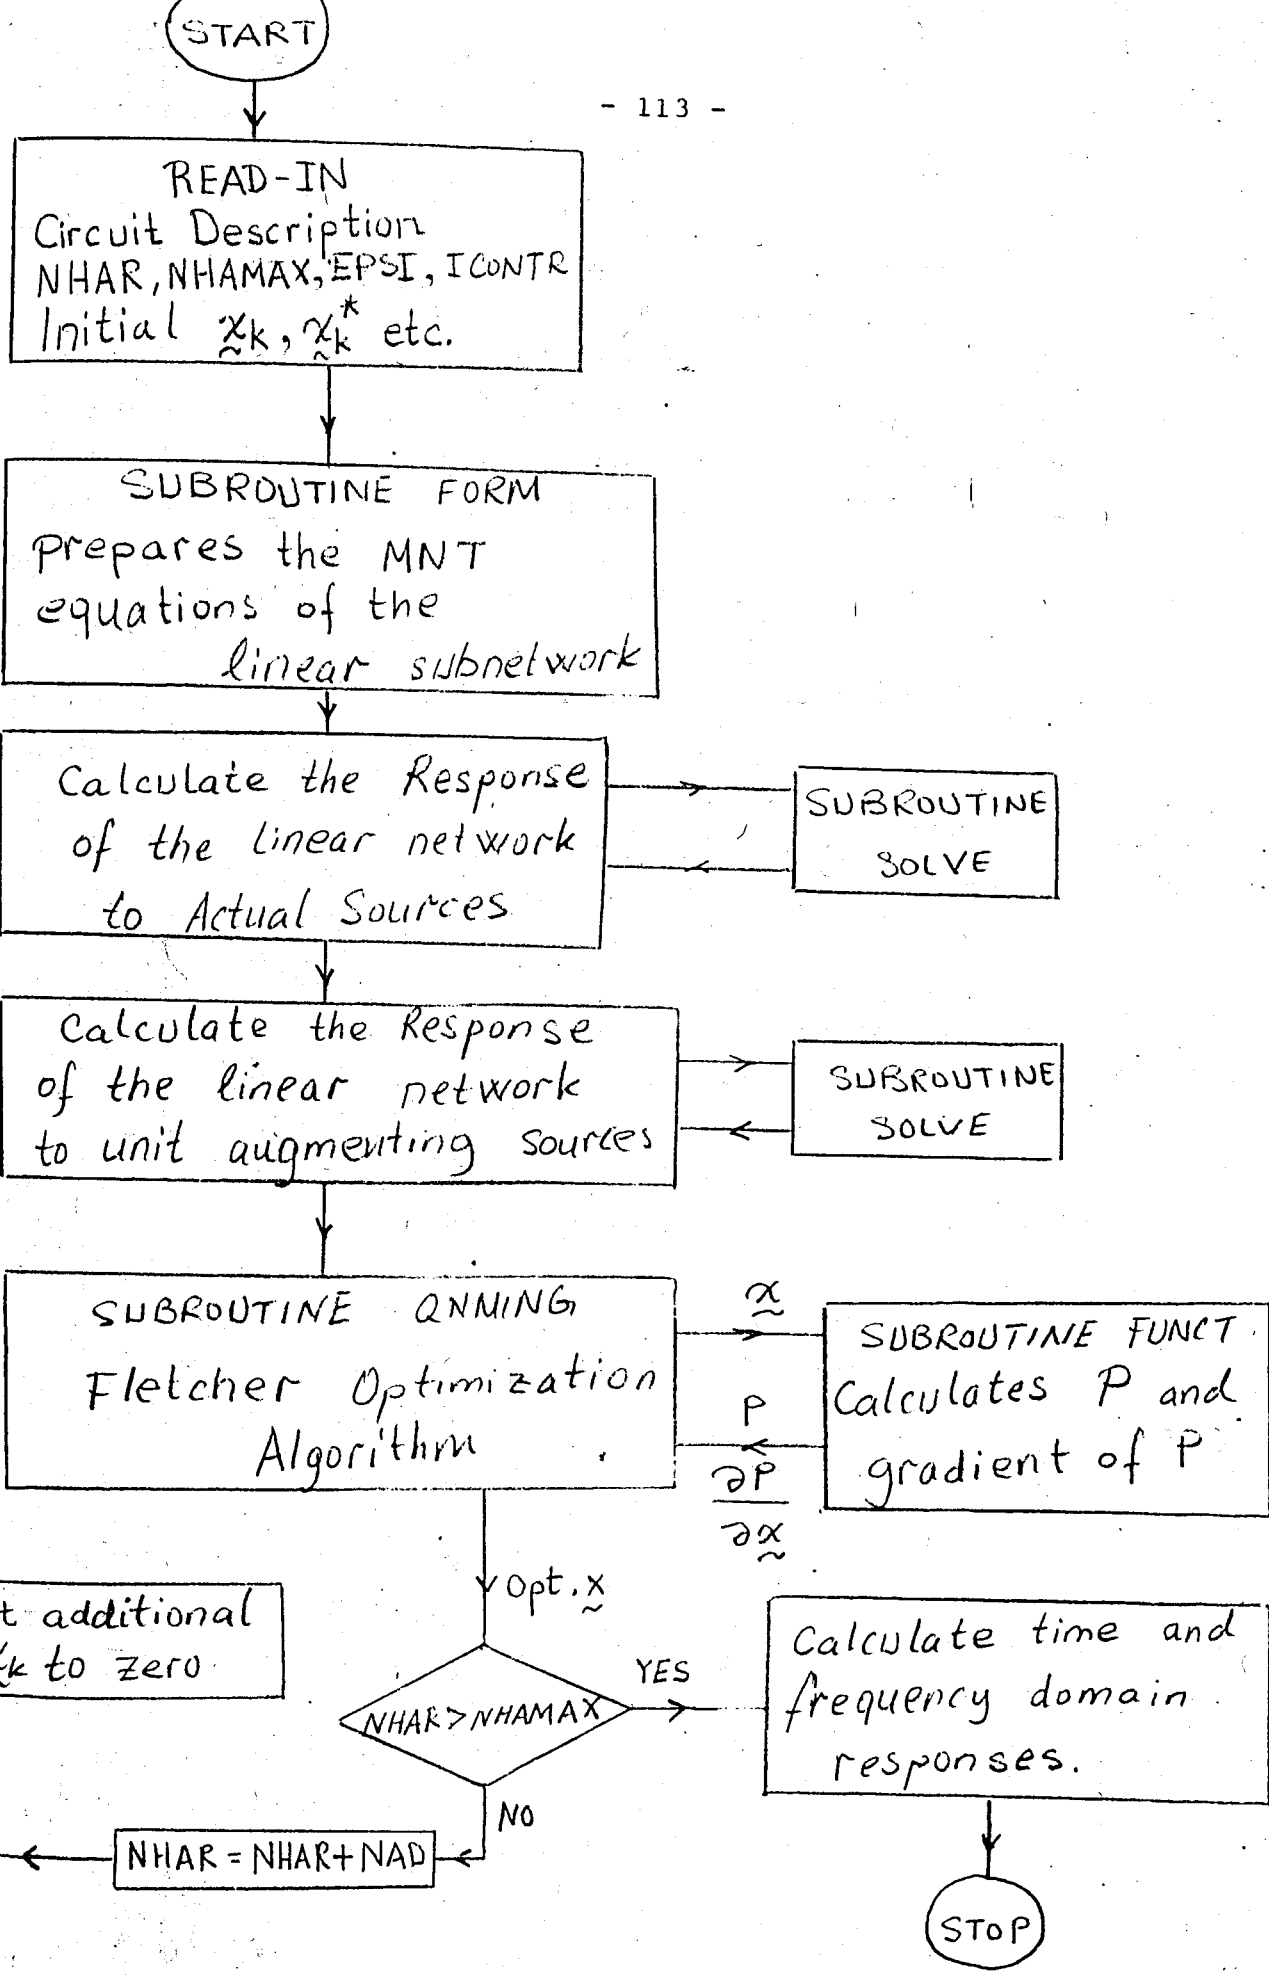 START
- 113 -
READ-IN
Circuit Description
NHAR, NHAMAX, EPSI, ICONTR
Initial x̰k, x̰k* etc.
SUBROUTINE FORM
Prepares the MNT
equations of the
linear subnetwork
Calculate the Response
of the linear network
to Actual Sources
SUBROUTINE
SOLVE
Calculate the Response
of the linear network
to unit augmenting sources
SUBROUTINE
SOLVE
SUBROUTINE QNMING
Fletcher Optimization
Algorithm
x̰
P
∂P
∂x̰
SUBROUTINE FUNCT
Calculates P and
gradient of P
Opt. x̰
t additional
k to zero
NHAR>NHAMAX
YES
NO
Calculate time and
frequency domain
responses.
NHAR = NHAR+NAD
STOP